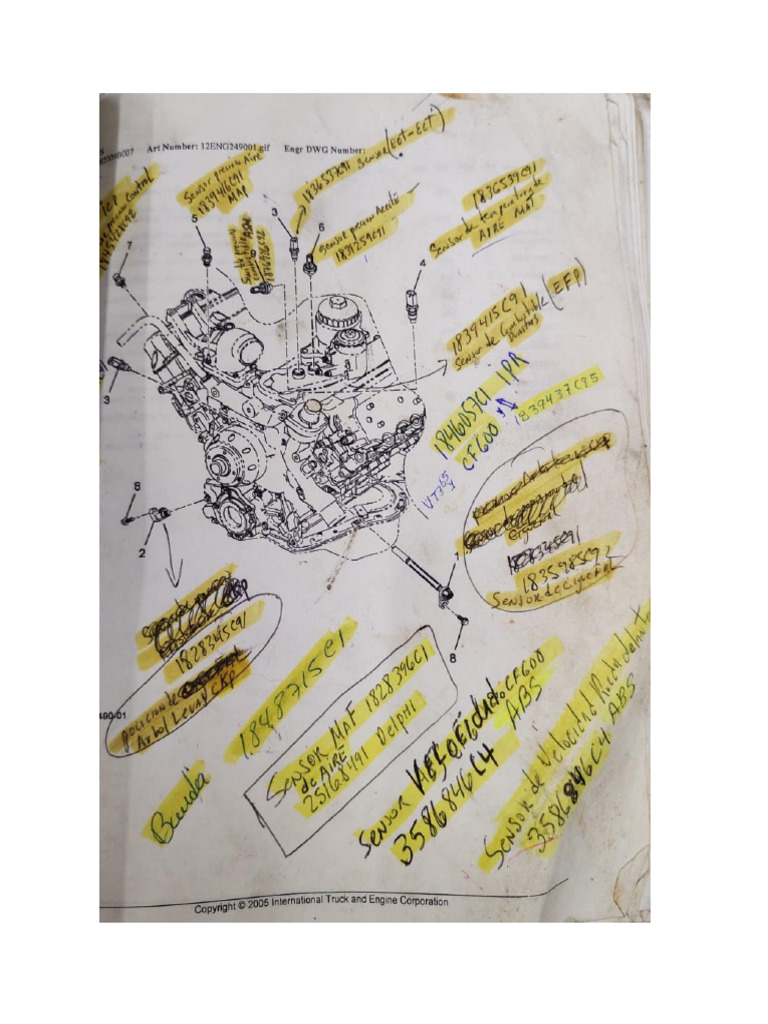 Art Number: 12ENG249001.gif Engr DWG Number:
Sensor presion Aire
1839416C91
MAP
1836537C91 Sensor (EOT-ECT)
Sensor presion Aceite
1831259C91
1836539C91
Sensor de temperatura de
AIRE MAT
5
3
6
7
4
3
1839415C91 (EFP)
Sensor de Combustible
1846057C1 IPR
CF600
1839437C95
VT365
8
2
1
8
1828345C91
1835985C92
Sensor de Cigueñal
1828345C91
POCICION de
Arbol Levas CKP
490-01
1848715C1
Banda
SENSOR MAF 1828396C1
de AIRE
25168491 Delphi
SENSOR VELOCIDAD CF600
3586846C4 ABS
SENSOR de Velocidad Rueda delantera
3586846C4 ABS
Copyright © 2005 International Truck and Engine Corporation